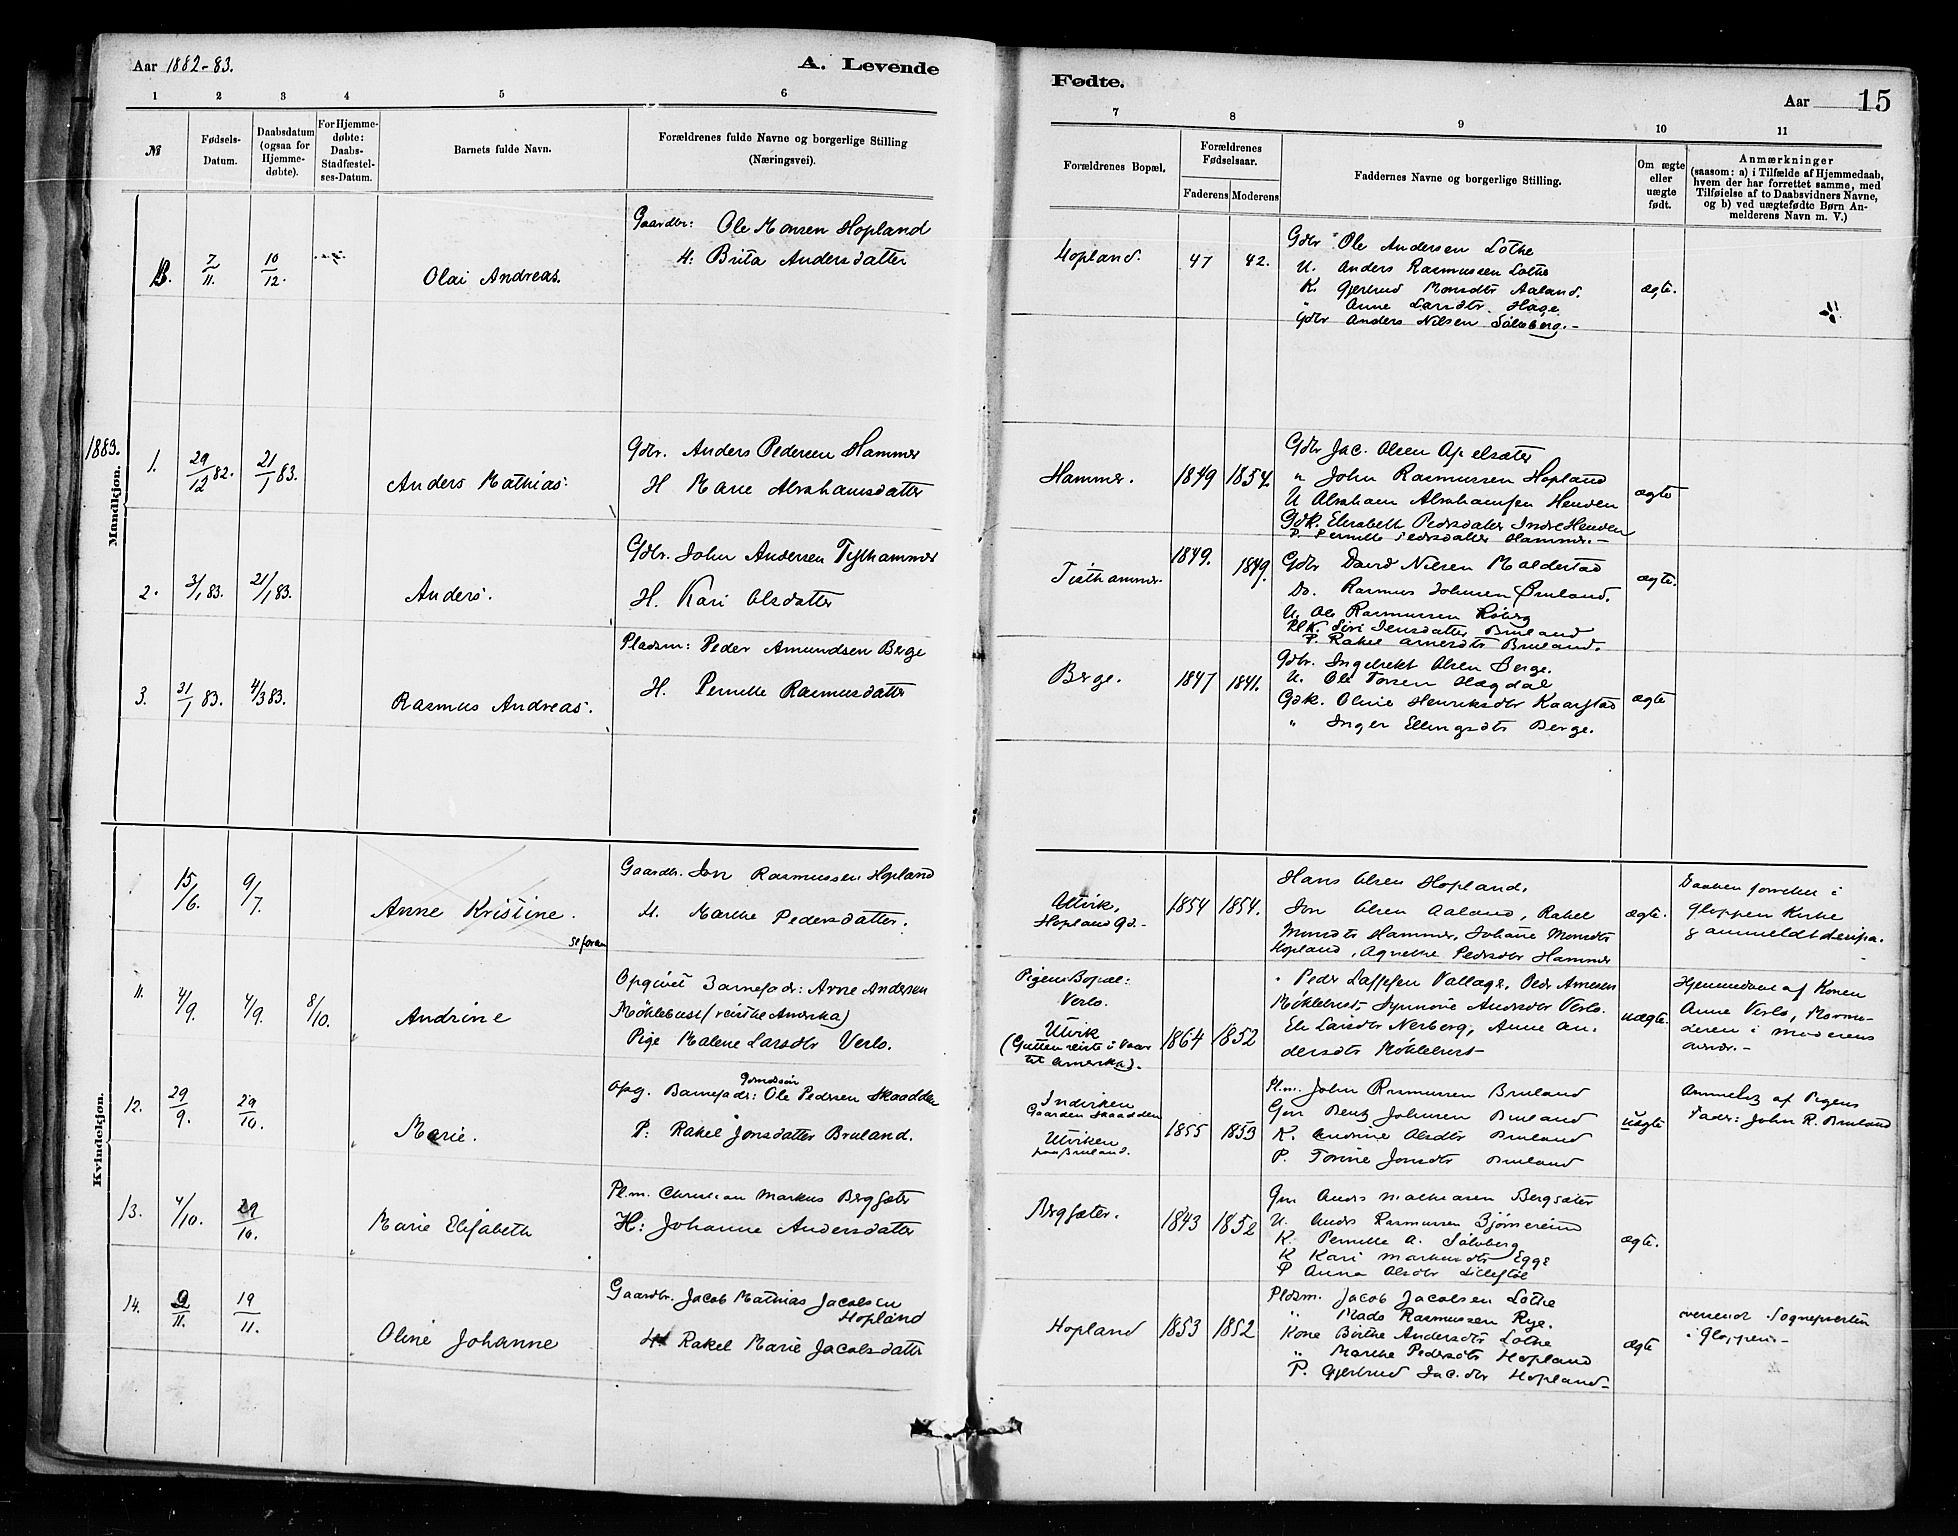 Aar 1882-83.
A. Levende
Fødte.
Aar 15
1 2 3 4 5 6 7 8 9 10 11
№
Fødsels-Datum.
Daabsdatum (ogsaa for Hjemmedøbte).
For Hjemmedøbte: Daabs-Stadfæstelses-Datum.
Barnets fulde Navn.
Forældrenes fulde Navne og borgerlige Stilling (Næringsvei).
Forældrenes Bopæl.
Forældrenes Fødselsaar.
Faderens Moderens
Faddernes Navne og borgerlige Stilling.
Om ægte eller uægte født.
Anmærkninger
(saasom: a) i Tilfælde af Hjemmedaab,
hvem der har forrettet samme, med
Tilføielse af to Daabsvidners Navne,
og b) ved uægtefødte Børn Anmelderens Navn m. V.)
Mandkjøn.
7/11. 10/12.
Olai Andreas.
Gaardbr: Ole Monsen Hopland
H: Brita Andersdatter
Hopland. 47 42.
Gdbr Ole Andersen Lothe
U. Anders Rasmussen Lothe
K. Gjertrud Monsdtr Aaland.
" Anne Larsdtr. Hage
Gdbr Anders Nilsen Sølvberg.-
ægte.
1883.
1. 29/12 82. 21/1 83.
Anders Mathias.
Gdbr. Anders Pedersen Hammer
H Marie Abrahamsdatter
Hammer. 1849 1854.
Gdbr Jac. Olsen Apelsæter
" John Rasmussen Hopland
U Abraham Abrahamsen Henden
Gdk. Elisabeth Pedersdatter Indre Henden
P. Pernille Pedersdatter Hammer.-
ægte
2. 3/1 83. 21/1 83.
Anders.
Gdbr. John Andersen Tysthammer
H. Kari Olsdatter
Tisthammer. 1849. 1849.
Gdbr David Nilsen Maldestad
Do. Rasmus Johnsen
U. Ole Rasmussen
Pl.K. Siri Jensdatter Bruland
P. Rakel Arnesdtr Bruland.
ægte.
3. 31/1 83. 4/3 83.
Rasmus Andreas.
Pladsm: Peder Amundsen Berge
H. Pernille Rasmusdatter
Berge. 1847 1841.
Gdbr. Ingebrekt Olsen Berge.
U. Ole Tørsen Hægdal
Gdk. Oline Henriksdtr Kaarstad
" Inger Ellingsdtr Berge.
ægte
Kvindekjøn.
15/6. 9/7.
Anne Kristine.
se foran
Gaardbr. Jon Rasmussen Hopland
H. Marthe Pedersdatter.
Utvik, Hopland Gd.- 1854 1854.
Hans Olsen Hopland.
Jon Olsen Aaland, Rakel
Monsdtr Hammer, Johane Monsdtr
Hopland, Agnethe Pedersdtr Hammer
ægte.
Daaben forrettet i
Gloppen Kirke
11. 4/9. 4/9. 8/10.
Andrine
Opgivet Barnefadr: Arne Andersen
Møklebust (reiste Amerika)
Pige Malene Larsdtr Verlo.
Pigens Bopæl:
Verlo.
Utvik
(Gutten reiste i Vaar
til Amerika).
1864 1852
Møklebust, Synnøve Andersdtr Verlo.
Eli Larsdtr Nesberg, Anne An-
dersdtr Møklebust-
uægte.
Hjemmedøbt af Konen
Anne Verlo, Mormo-
deren i moderens
12. 29/9. 29/10.
Marie.
Opg. Barnefadr: Gaardsøn Ole Pedersen Skaadden
P: Rakel Jonsdatter Bruland.
Indviken
Gaarden Skaadden
Utviken
paa Bruland.
1855 1853
Plm. John Rasmussen Bruland
Gm Bent Johnsen Bruland
K. Andrine Olsdtr Bruland
P. Torine Jonsdtr Bruland
uægte
Anmeldt af Pigens
Fader: John R. Bruland
13. 4/10. 29/10.
Marie Elisabeth
Pl.m. Christian Markus Bergsæter
H: Johanne Andersdatter
Bergsæter. 1843 1852
Gm Anders Mathiasen Bergsæter
U. Anders Rasmussen Bjørnereim
K. Pernille A. Sølvberg
K Kari Markusdtr Egge
P Anna Olsdtr Lillestøl
ægte.
14. 9/11. 19/11.
Oline Johanne
Gaardbr. Jacob Mathias Jacobsen
Hopland
H Rakel Marie Jacobsdatter
Hopland 1853 1852
Pldsm. Jacob Jacobsen Lothe
" Mads Rasmussen Rye.
Kone Birthe Andersdtr Lothe
" Marthe Pedersdtr Hopland
P. Gjertrud Jac.dtr Hopland-
ægte
oversendt Sognepresten
i Gloppen-